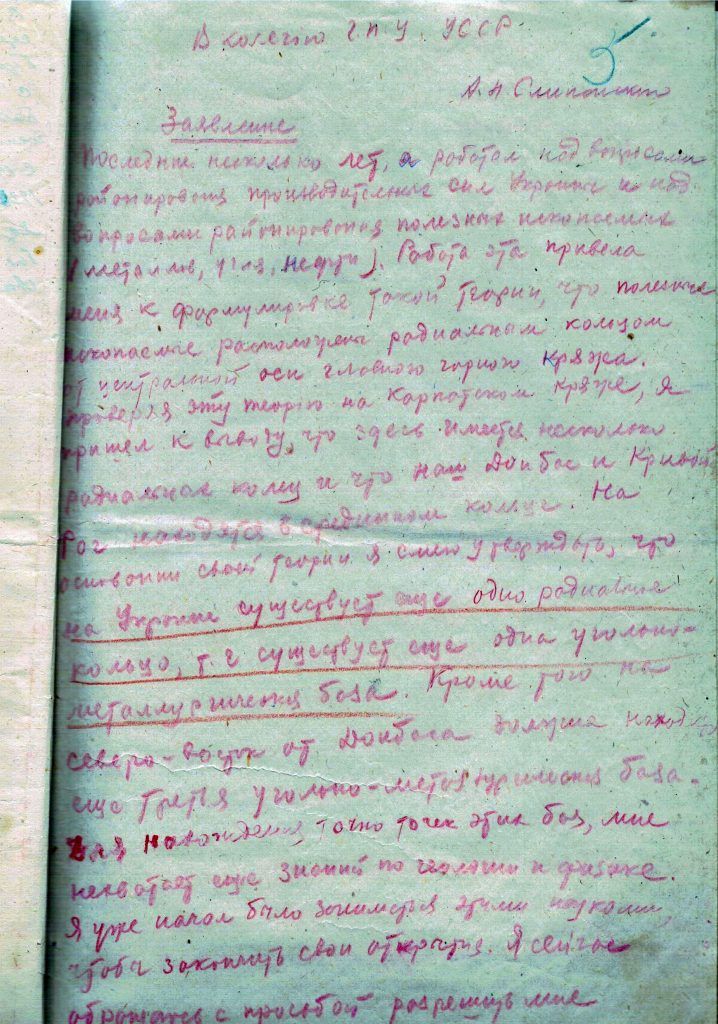 В колегию ГПУ УССР
5
А. А Слипанского
Заявление
Последние несколько лет, я работал над вопросами
районирования производительных сил Украины и над
вопросами районирования полезных ископаемых
(металлов, угля, нефти). Работа эта привела
меня к формулировке такой теории, что полезные
ископаемые расположены радиальным кольцом
от центральной оси главного горного кряжа.
Проверяя эту теорию на Карпатском кряже, я
пришел к выводу, что здесь имеется несколько
радиальных колец и что наш Донбас и Кривой
Рог находятся в срединном кольце. На
основании своей теории я смею утверждать, что
на Украине существует еще одно радиальное
кольцо, т. е существует еще одна угольно-
металлургическая база. Кроме того на
северо-восток от Донбаса должна находиться
еще третья угольно-металлургическая база.
Для нахождения точно точек этих баз, мне
нехватает еще знаний по геологии и физике.
Я уже начал было заниматься этими науками,
чтобы закончить свои открытия. Я сейчас
обращаюсь с просьбой разрешить мне